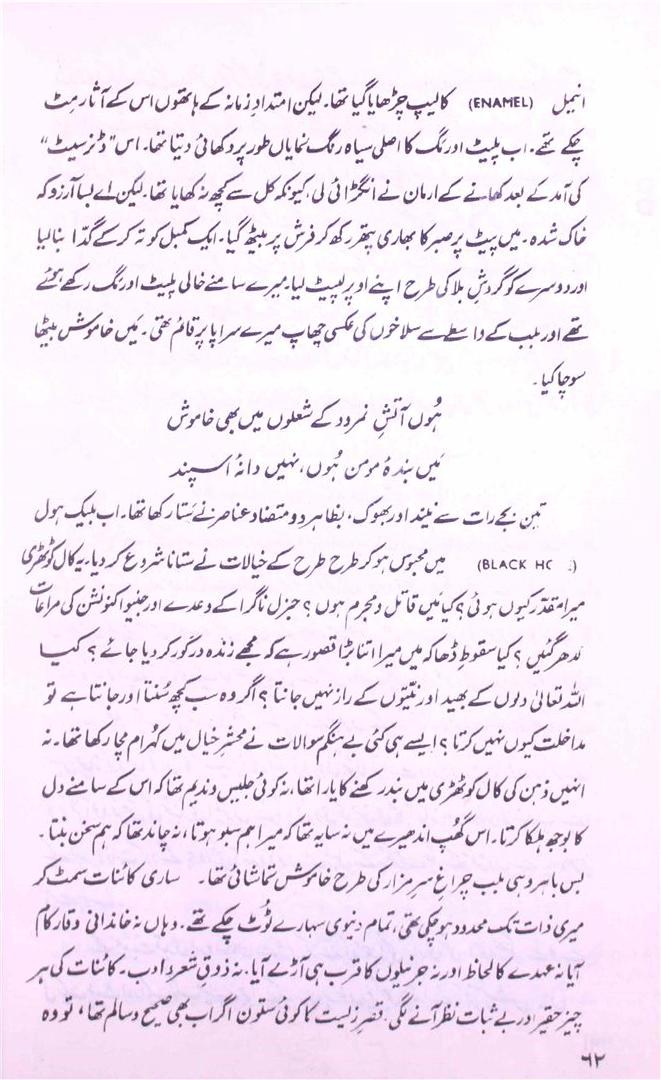 انیمل (ENAMEL) کا لیپ چڑھایا گیا تھا۔ لیکن امتدادِ زمانہ کے ہاتھوں اس کے آثار مٹ
چکے تھے۔ اب پلیٹ اور مگ کا اصلی سیاہ رنگ نمایاں طور پر دکھائی دیتا تھا۔ اس "ڈنر سیٹ"
کی آمد کے بعد کھانے کے ارمان نے انگڑائی لی، کیونکہ کل سے کچھ نہ کھایا تھا۔ لیکن اے بسا آرزو کہ
خاک شدہ۔ میں پیٹ پر صبر کا بھاری پتھر رکھ کر فرش پر بیٹھ گیا۔ ایک کمبل کو تہ کر کے گدّا بنا لیا
اور دوسرے کو گردشِ بلا کی طرح اپنے اوپر لپیٹ لیا۔ میرے سامنے خالی پلیٹ اور مگ رکھے ہوئے
تھے اور بلب کے واسطے سے سلاخوں کی عکسی چھاپ میرے سراپا پر قائم تھی۔ مَیں خاموش بیٹھا
سوچا کیا۔
ہُوں آتشِ نمرود کے شعلوں میں بھی خاموش
مَیں بندۂ مومن ہُوں، نہیں دانۂ اسپند
تین بجے رات سے نیند اور بھوک، بظاہر دو متضاد عناصر نے ستا رکھا تھا۔ اب بلیک ہول
(BLACK HO میں محبوس ہو کر طرح طرح کے خیالات نے ستانا شروع کر دیا۔ یہ کال کوٹھڑی
میرا مقدّر کیوں ہوئی؟ کیا مَیں قاتل و مجرم ہوں؟ جنرل ناگرا کے وعدے اور جنیوا کنونشن کی مراعات
کدھر گئیں؟ کیا سقوطِ ڈھاکہ میں میرا اتنا بڑا قصور ہے کہ مجھے زندہ درگور کر دیا جائے؟ کیا
اللہ تعالیٰ دلوں کے بھید اور نیّتوں کے راز نہیں جانتا؟ اگر وہ سب کچھ سُنتا اور جانتا ہے تو
مداخلت کیوں نہیں کرتا؟ ایسے ہی کئی بے ہنگم سوالات نے محشرِ خیال میں کہرام مچا رکھا تھا۔ نہ
انہیں ذہن کی کال کوٹھڑی میں بند رکھنے کا یارا تھا، نہ کوئی جلیس و ندیم تھا کہ اس کے سامنے دل
کا بوجھ ہلکا کرتا۔ اس گھُپ اندھیرے میں نہ سایہ تھا کہ میرا ہم پہلو ہوتا، نہ چاند تھا کہ ہم سخن بنتا۔
بس باہر وہی بلب چراغِ سرِ مزار کی طرح خاموش تماشائی تھا۔ ساری کائنات سمٹ کر
میری ذات تک محدود ہو چکی تھی، تمام دنیوی سہارے ٹوٹ چکے تھے۔ وہاں نہ خاندانی وقار کام
آیا نہ عہدے کا لحاظ اور نہ جرنیلوں کا قرب ہی آڑے آیا۔ نہ ذوقِ شعر و ادب۔ کائنات کی ہر
چیز حقیر اور بے ثبات نظر آنے لگی۔ قصرِ زلیست کا کوئی ستون اگر اب بھی صحیح و سالم تھا، تو وہ
۶۲